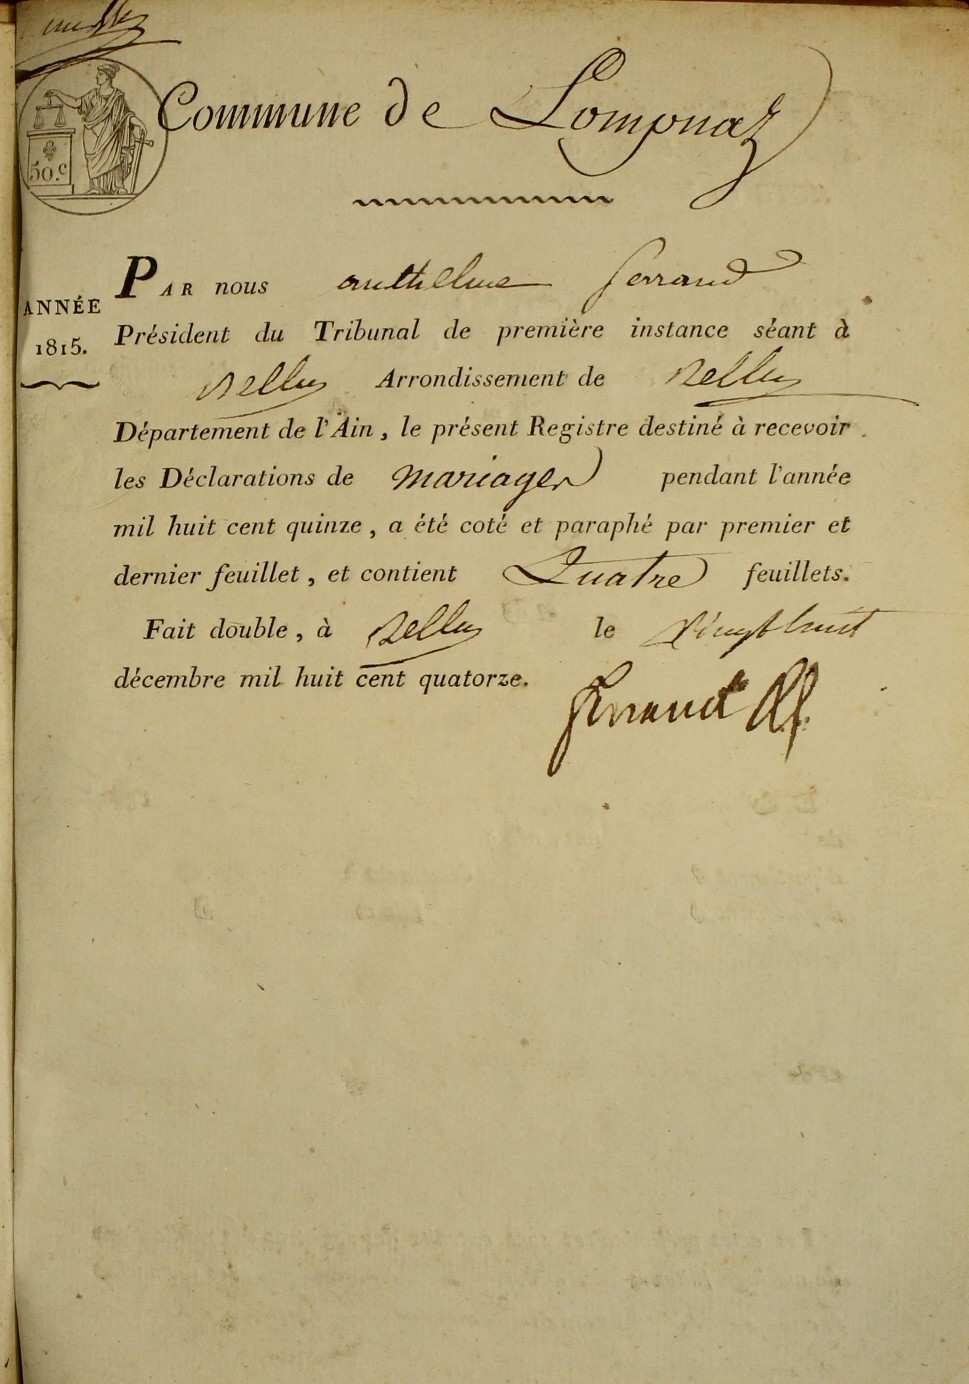 Commune de Lompnaz
50.c
ANNÉE
1815.
PAR nous anthelme ferrand
Président du Tribunal de première instance séant à
Belley Arrondissement de Belley
Département de l'Ain, le présent Registre destiné à recevoir
les Déclarations de mariages pendant l'année
mil huit cent quinze, a été coté et paraphé par premier et
dernier feuillet, et contient Quatre feuillets.
Fait double, à Belley le vingt huit
décembre mil huit cent quatorze.
ferrand